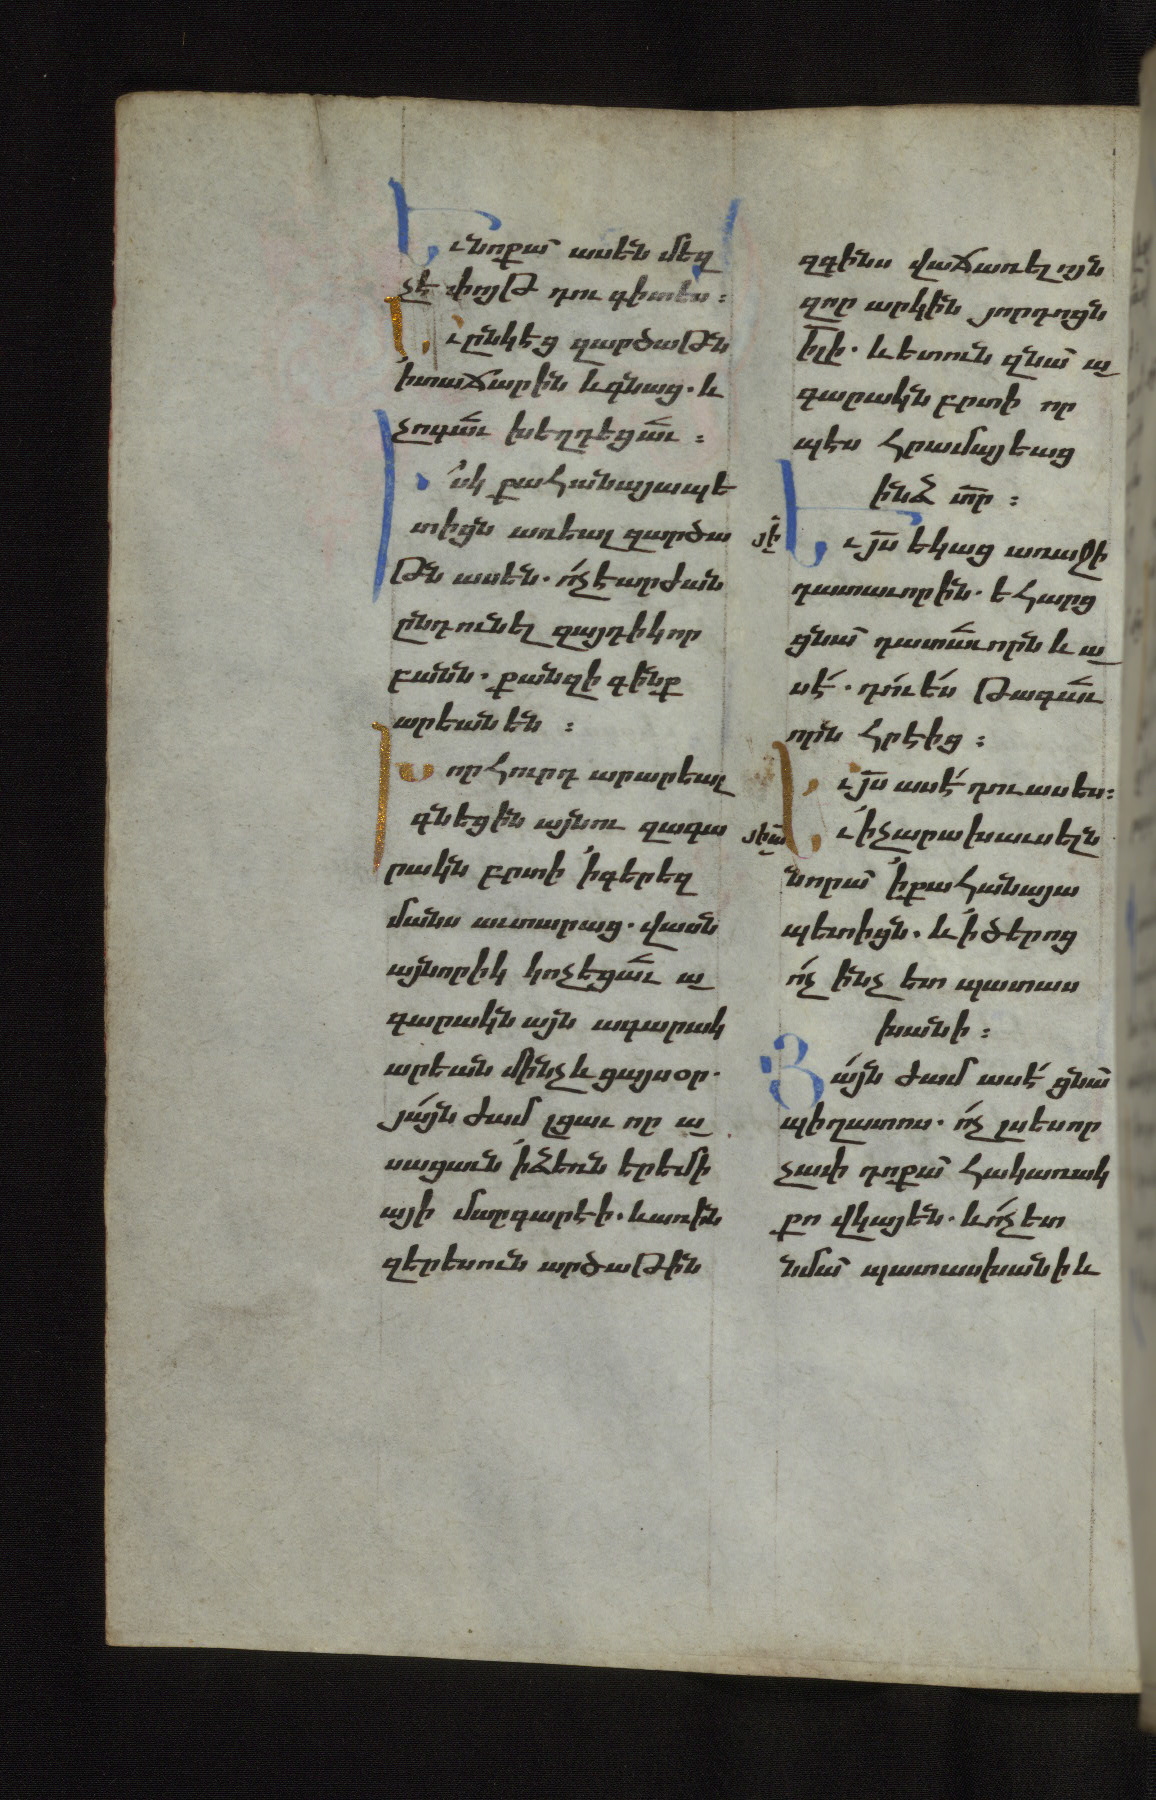 Եւ նոքա ասեն մեզ
չէ փոյթ դու գիտես։
Եւ ընկէց զարծաթն
՛ի տաճարին և գնաց. և
չոգաւ խեղդեցաւ։
Իսկ քահանայապե
տիցն առեալ զարծա
թն ասեն. ո՛չ է արժան
ընդունել զայդ ի կոր
բանն. քանզի գինք
արեան են։
Խորհուրդ արարեալ
գնեցին այնու զագա
րակն բրտի ՛ի գերեզ
մանս աւտարաց. վասն
այնորիկ կոչեցաւ ա
գարակն այն ագարակ
արեան մինչև ցայսօր.
յա՛յն ժամ լցաւ որ ա
սացաւն ՛ի ձեռն երեմի
այի մարգարէի. և առին
զերեսուն արծաթին
զգինս վաճառելոյն
զոր արկին յորդոցն
ի̅լի. և ետուն զնա ա
գարակն բրտի որ
պէս հրամայեաց
ինձ տ̅ր։
Եւ յ̅ս եկաց առաջի
դատաւորին. եհարց
ցնա դատաւորն և ա
սէ՛. դո՛ւ ե՛ս թագաւ
որն հրէից։
Եւ յ̅ս ասէ՛ դու ասես։
Եւ ՛ի չարախաւսելն
նորա ՛ի քահանայա
պետիցն. և ՛ի ծերոց
ո՛չ ինչ ետ պատաս
խանի։
Յա՛յն ժամ ասէ՛ ցնա
պիղատոս. ո՛չ լսես որ
չափ դոքա հակառակ
քո վկայեն. և ո՛չ ետ
նմա պատասխանի և